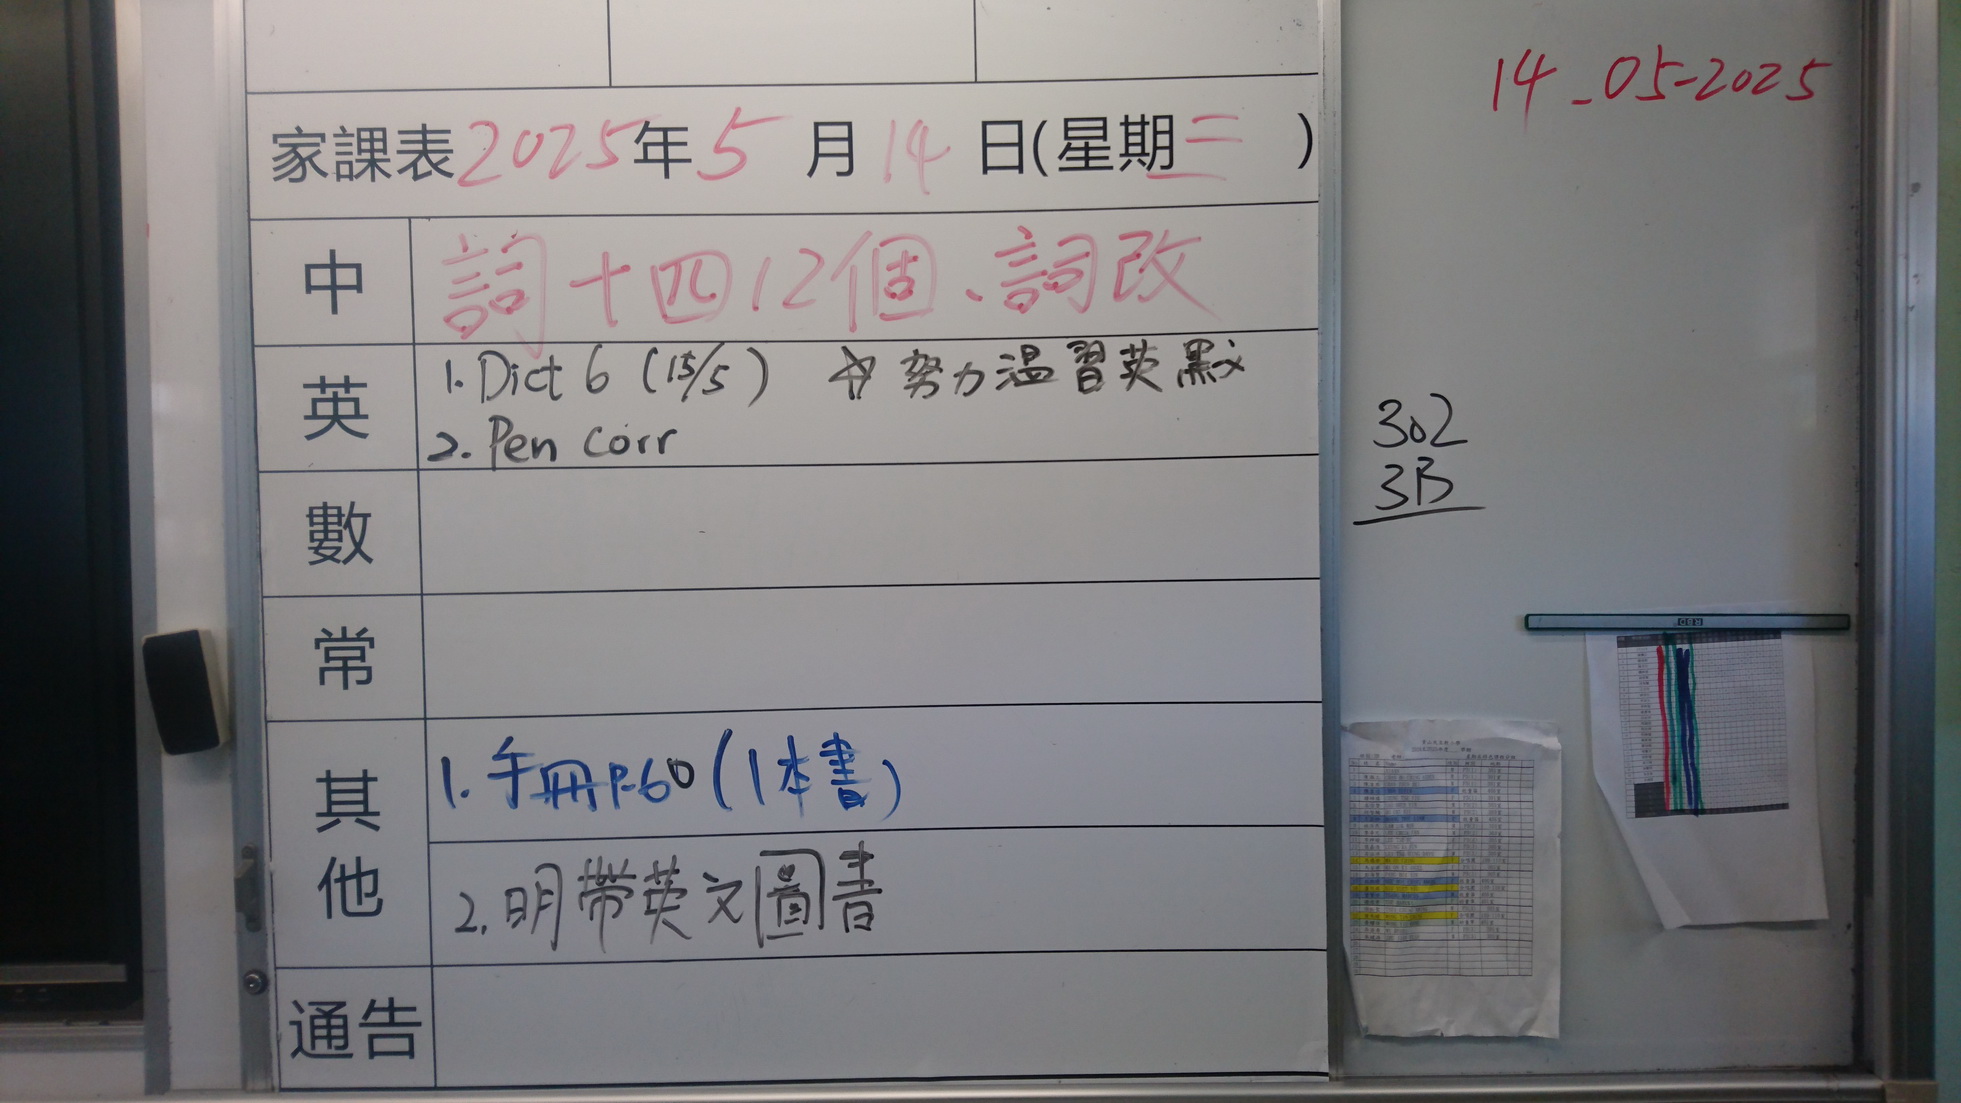 家課表2025年5月14日(星期三)
中 詞十四12個、詞改
英 1. Dict 6 (15/5) ☆努力溫習英默
2. Pen Corr
數
常
其他 1. 手冊P.60(1本書)
2. 明帶英文圖書
通告
14-05-2025
302
3B